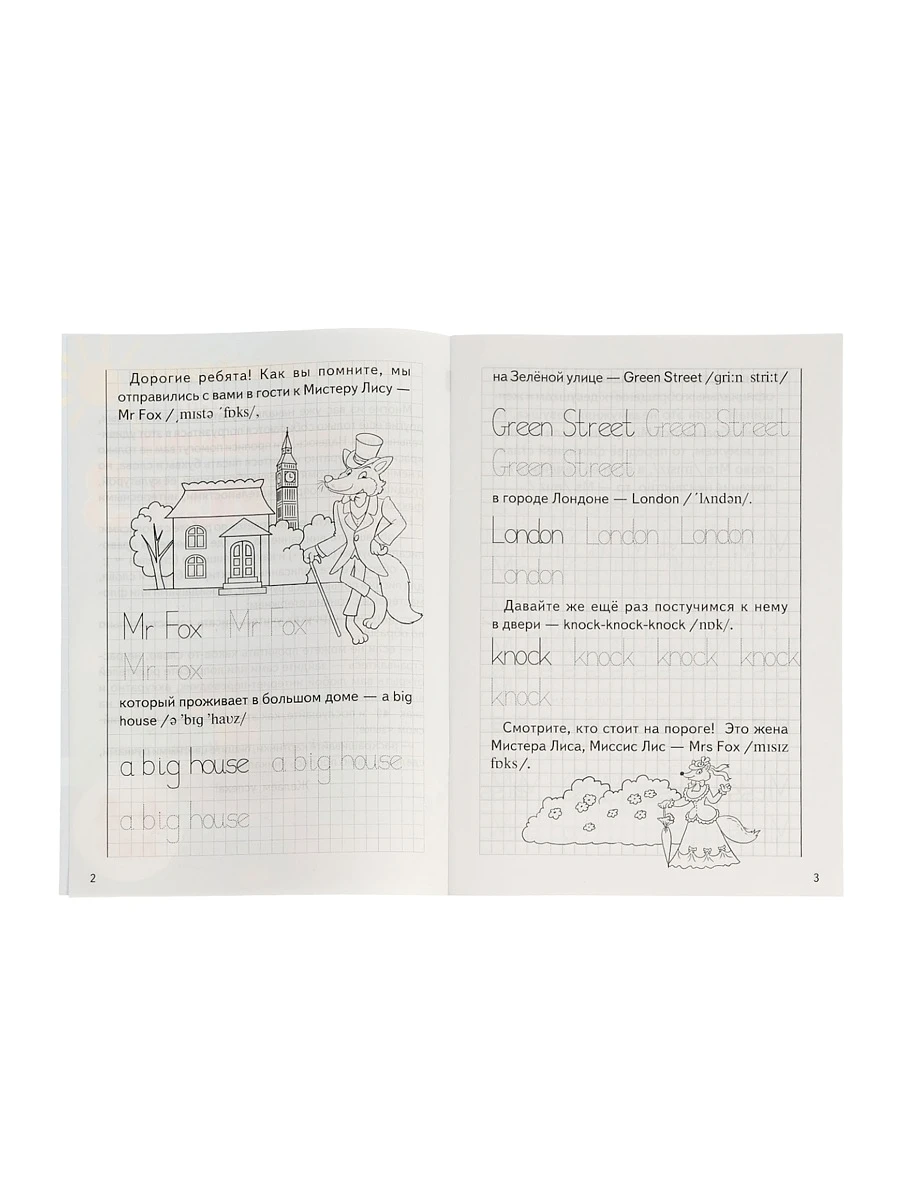 Дорогие ребята! Как вы помните, мы
отправились с вами в гости к Мистеру Лису —
Mr Fox /ˌmɪstə ˊfɒks/,
Mr Fox Mr Fox
Mr Fox
который проживает в большом доме — a big
house /ə ˈbɪg ˈhaʊz/
a big house a big house
a big house
2
на Зелёной улице — Green Street /gri:n stri:t/
Green Street Green Street
Green Street
в городе Лондоне — London /ˊlʌndən/.
London London London
London
Давайте же ещё раз постучимся к нему
в двери — knock-knock-knock /nɒk/.
knock knock knock knock
knock
Смотрите, кто стоит на пороге! Это жена
Мистера Лиса, Миссис Лис — Mrs Fox /mɪsɪz
fɒks/.
3